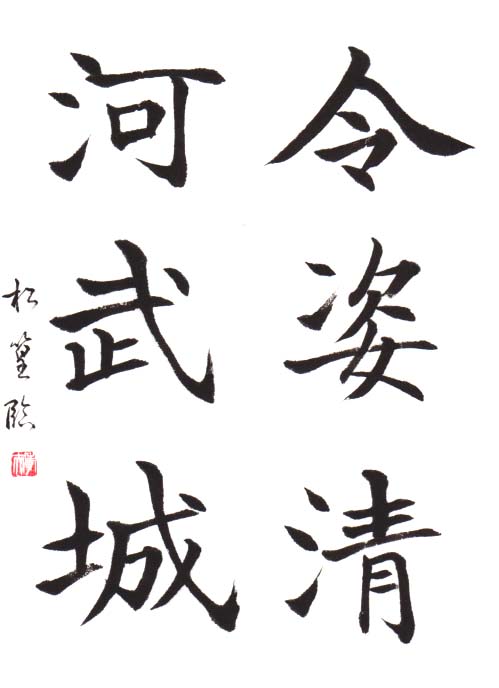 令姿清
河武城
松篁臨